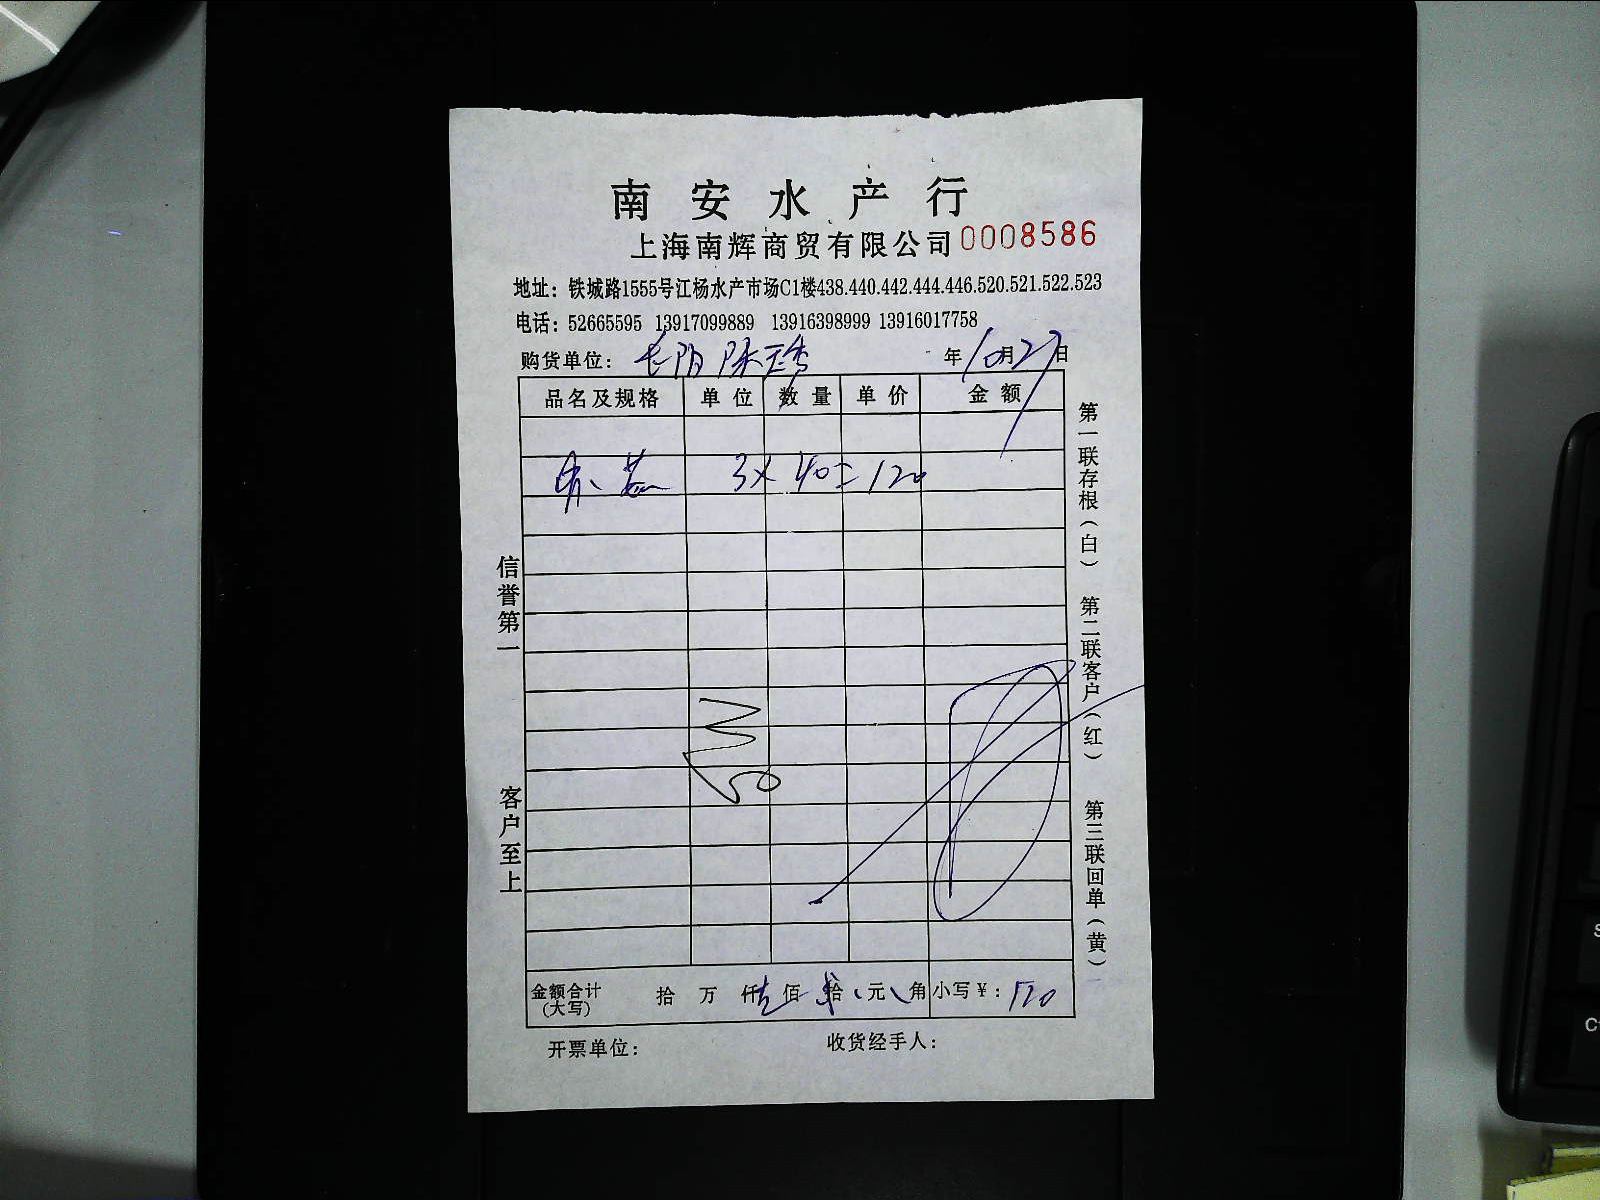 南安水产行
上海南辉商贸有限公司 0008586
地址：铁城路1555号江杨水产市场C1楼438.440.442.444.446.520.521.522.523
电话：52665595 13917099889 13916398999 13916017758
购货单位： 年10月27日
品名及规格 单位 数量 单价 金额
3×40=120
信誉第一
客户至上
第一联存根（白）
第二联客户（红）
第三联回单（黄）
金额合计（大写） 拾 万 仟 佰 拾 元 角 小写￥：120
开票单位： 收货经手人：